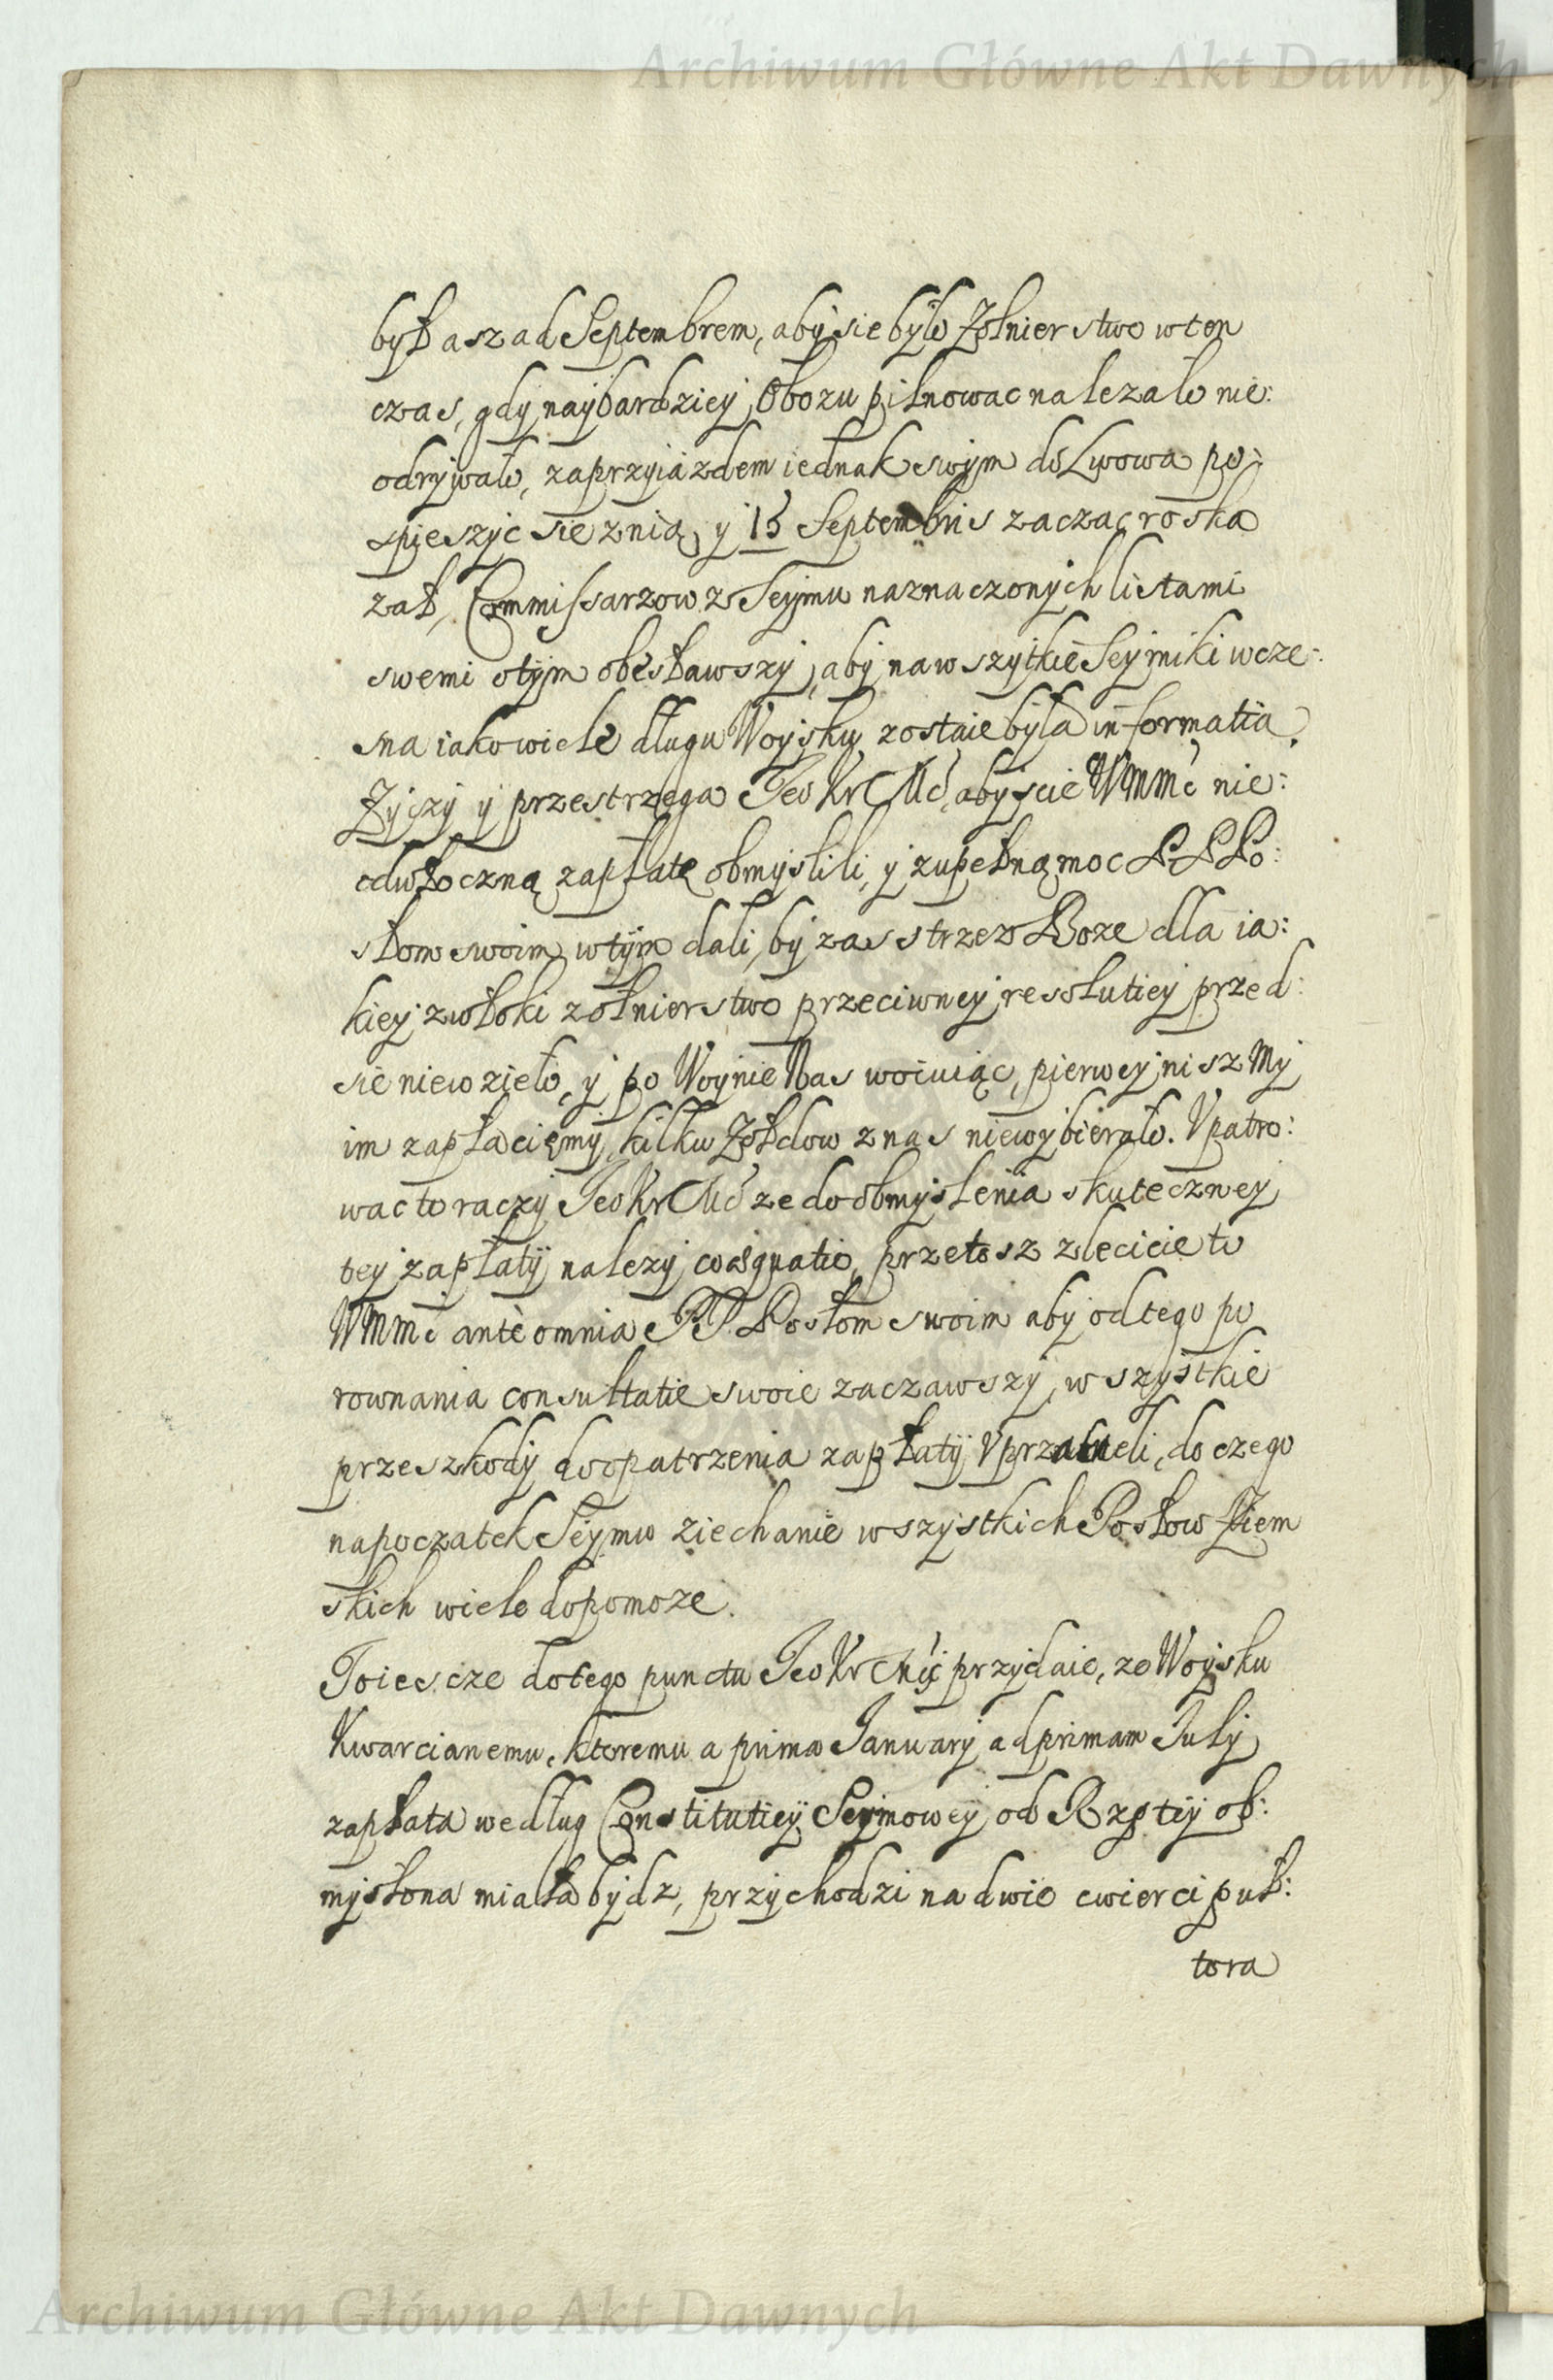 Archiwum Główne Akt Dawnych
był asz ad Septembrem, aby sie było Zołnierstwo w ten
czas, gdy naybardziey Obozu pilnowac nalezało nie:
odrywało, zaprzyiazdem iednak swym do Lwowa po:
spieszyc sie znią, y 15 Septembris zacząc roska
zał, Commissarzow z Seymu naznaczonych listami
swemi otym obesławszy, aby na wszytkie Seymiki wcze:
sna iako wiele długu Woysku zostaie była informatia.
Zyczy y przestrzega Jeo Kr Mć, abyscie WMMć nie:
odwłoczną zapłatę obmyslili, y zupełną moc PP Po:
słom swoim w tym dali, by zas strzez Boze dla ia:
kiey zwłoki zołnierstwo przeciwney resolutiey przed:
sie niewzieło, y po Woynie Nas woiuiąc, pierwey nisz My
im zapłaciemy, kilku Zołdow z nas niewybierało. Vpatro:
wac to raczy Jeo Kr Mć ze do obmyslenia skuteczney
tey zapłaty nalezy coæquatio, przetosz zlecicie to
WMMć ante omnia PP. Posłom swoim aby od tego po
rownania consultatie swoie zaczawszy, wszystkie
przeszkody do opatrzenia zapłaty Vprzatneli, do czego
napoczatek Seymu ziechanie wszystkich Posłow Ziem
skich wiele dopomoze.
To iescze do tego punctu Jeo Kr Mć przydaie, ze Woysku
Kwarcianemu, ktoremu a prima January ad primam July
zapłata według Constitutiey Seymowey od Rzptey ob:
myslona miała bydz, przychodzi na dwie cwierci puł:
tora
Archiwum Główne Akt Dawnych